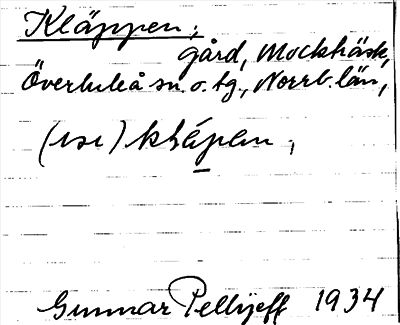 Kläppen;
gård, Mockträsk,
Överluleå sn. o. tg., Norrb. län,
Gunnar Pellijeff 1934